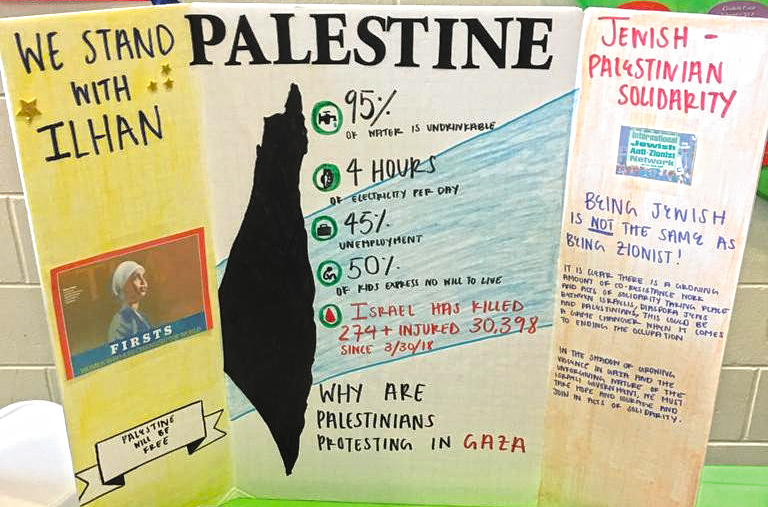 WE STAND
WITH
ILHAN
FIRSTS
PALESTINE
WILL BE
FREE
PALESTINE
95%
OF WATER IS UNDRINKABLE
4 HOURS
OF ELECTRICITY PER DAY
45%
UNEMPLOYMENT
50%
OF KIDS EXPRESS NO WILL TO LIVE
ISRAEL HAS KILLED
274+ INJURED 30,398
SINCE 3/30/18
WHY ARE
PALESTINIANS
PROTESTING IN GAZA
JEWISH -
PALESTINIAN
SOLIDARITY
International
Jewish
Anti-Zionist
Network
BEING JEWISH
IS NOT THE SAME AS
BEING ZIONIST!
IT IS CLEAR THERE IS A GROWING
AMOUNT OF CO-RESISTANCE WORK
AND ACTS OF SOLIDARITY TAKING PLACE
BETWEEN ISRAELIS, DIASPORA JEWS
AND PALESTINIANS, THIS COULD BE
A GAME CHANGER WHEN IT COMES
TO ENDING THE OCCUPATION
IN THE SHADOW OF GROWING
VIOLENCE IN GAZA AND THE
UNFORGIVING NATURE OF THE
ISRAELI GOVERNMENT, WE MUST
TAKE HOPE AND COURAGE AND
JOIN IN ACTS OF SOLIDARITY.